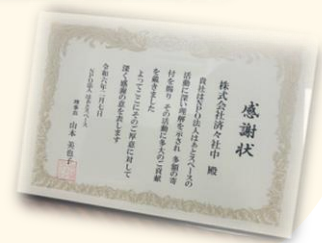 感謝状
株式会社済々社中 殿
貴社はNPO法人はぁとスペースの
活動に深い理解を示され 多額の寄
付を賜り その活動に多大のご貢献
を戴きました
よってここにそのご厚意に対して
深く感謝の意を表します
令和六年二月七日
NPO法人 はぁとスペース
理事長 山本 英也子